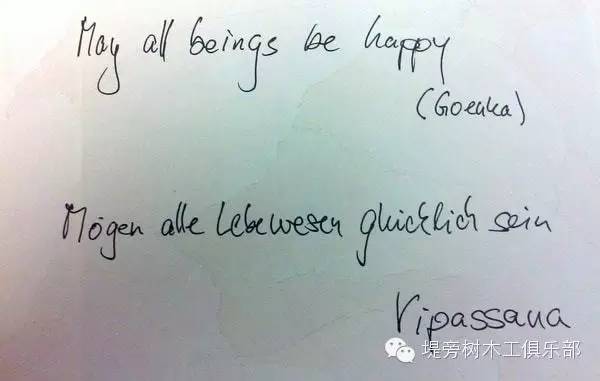 May all beings be happy
(Goenka)
Mögen alle Lebewesen glücklich sein
Vipassana
堤旁树木工俱乐部